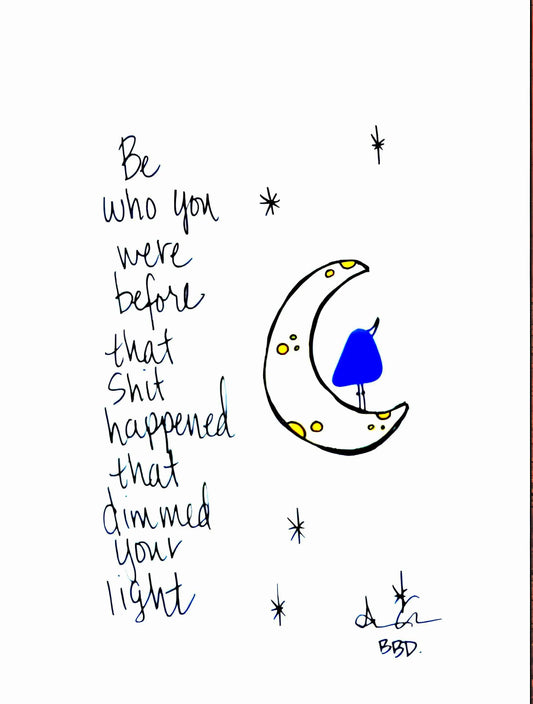 Be
who you
were
before
that
Shit
happened
that
dimmed
your
light
BBD.